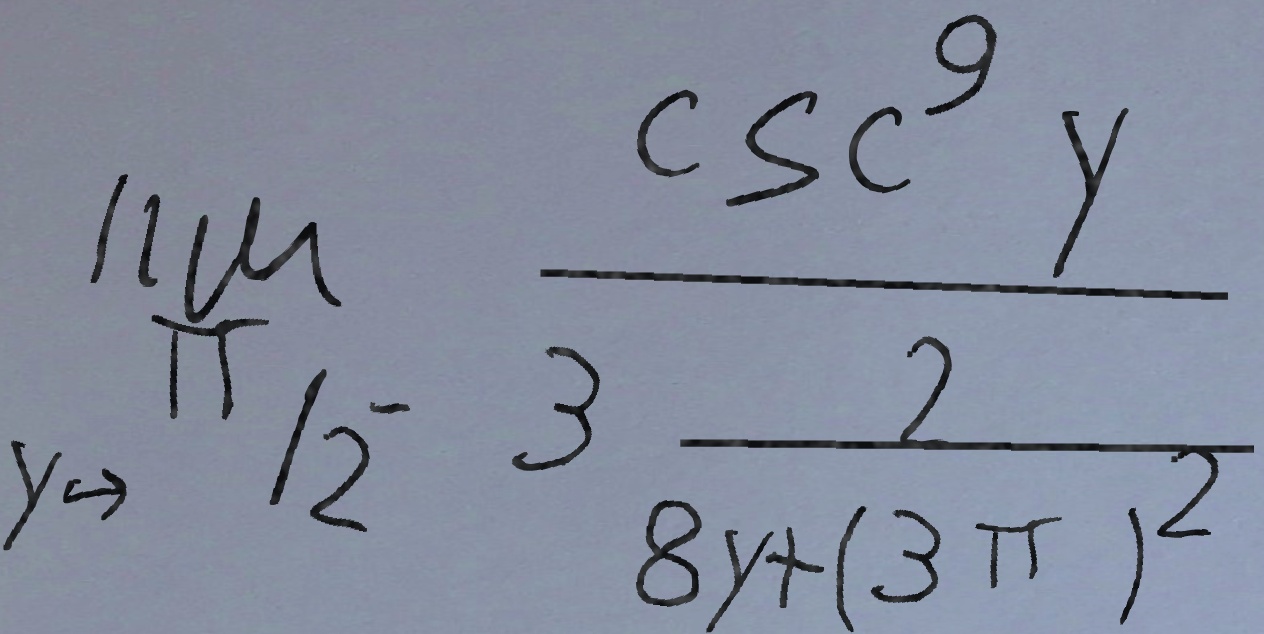 \lim_{y \to \pi/2^-} \frac{\csc^9 y}{3 \frac{2}{8y+(3\pi)^2}}